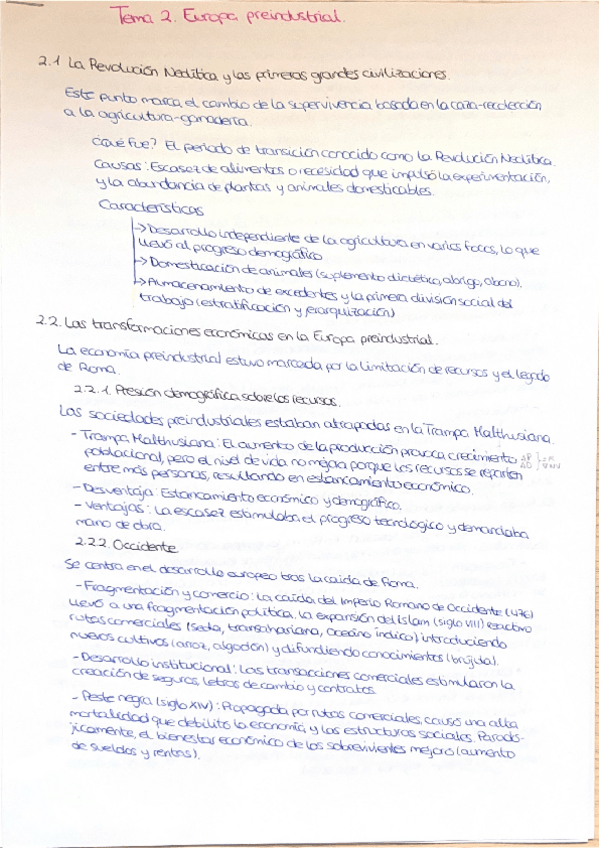 Tema 2. Europa preindustrial.
2.1 La Revolución Neolítica y las primeras grandes civilizaciones.
Este punto marca el cambio de la supervivencia basada en la caza-recolección
a la agricultura-ganadería.
¿Qué fue? El periodo de transición conocido como la Revolución Neolítica.
Causas: Escasez de alimentos o necesidad que impulsó la experimentación,
y la abundancia de plantas y animales domesticables.
Características
→ Desarrollo independiente de la agricultura en varios focos, lo que
llevó al progreso demográfico
→ Domesticación de animales (suplemento dietético, abrigo, abono).
→ Almacenamiento de excedentes y la primera división social del
trabajo (estratificación y jerarquización)
2.2. Las transformaciones económicas en la Europa preindustrial.
La economía preindustrial estuvo marcada por la limitación de recursos y el legado
de Roma.
2.2.1. Presión demográfica sobre los recursos.
Las sociedades preindustriales estaban atrapadas en la Trampa Malthusiana.
- Trampa Malthusiana: El aumento de la producción provoca crecimiento
poblacional, pero el nivel de vida no mejora porque los recursos se reparten
entre más personas, resultando en estancamiento económico.
- Desventaja: Estancamiento económico y demográfico.
- Ventajas: La escasez estimulaba el progreso tecnológico y demandaba
mano de obra.
2.2.2. Occidente
Se centra en el desarrollo europeo tras la caída de Roma.
- Fragmentación y comercio: La caída del Imperio Romano de Occidente (476)
llevó a una fragmentación política. La expansión del Islam (siglo VIII) reactivó
rutas comerciales (Seda, transahariana, Océano Índico) introduciendo
nuevos cultivos (arroz, algodón) y difundiendo conocimientos (brújula).
- Desarrollo institucional: Las transacciones comerciales estimularon la
creación de seguros, letras de cambio y contratos
- Peste negra (siglo XIV): Propagada por rutas comerciales, causó una alta
mortalidad que debilitó la economía y las estructuras sociales. Paradó-
jicamente, el bienestar económico de los sobrevivientes mejoró (aumento
de sueldos y rentas).